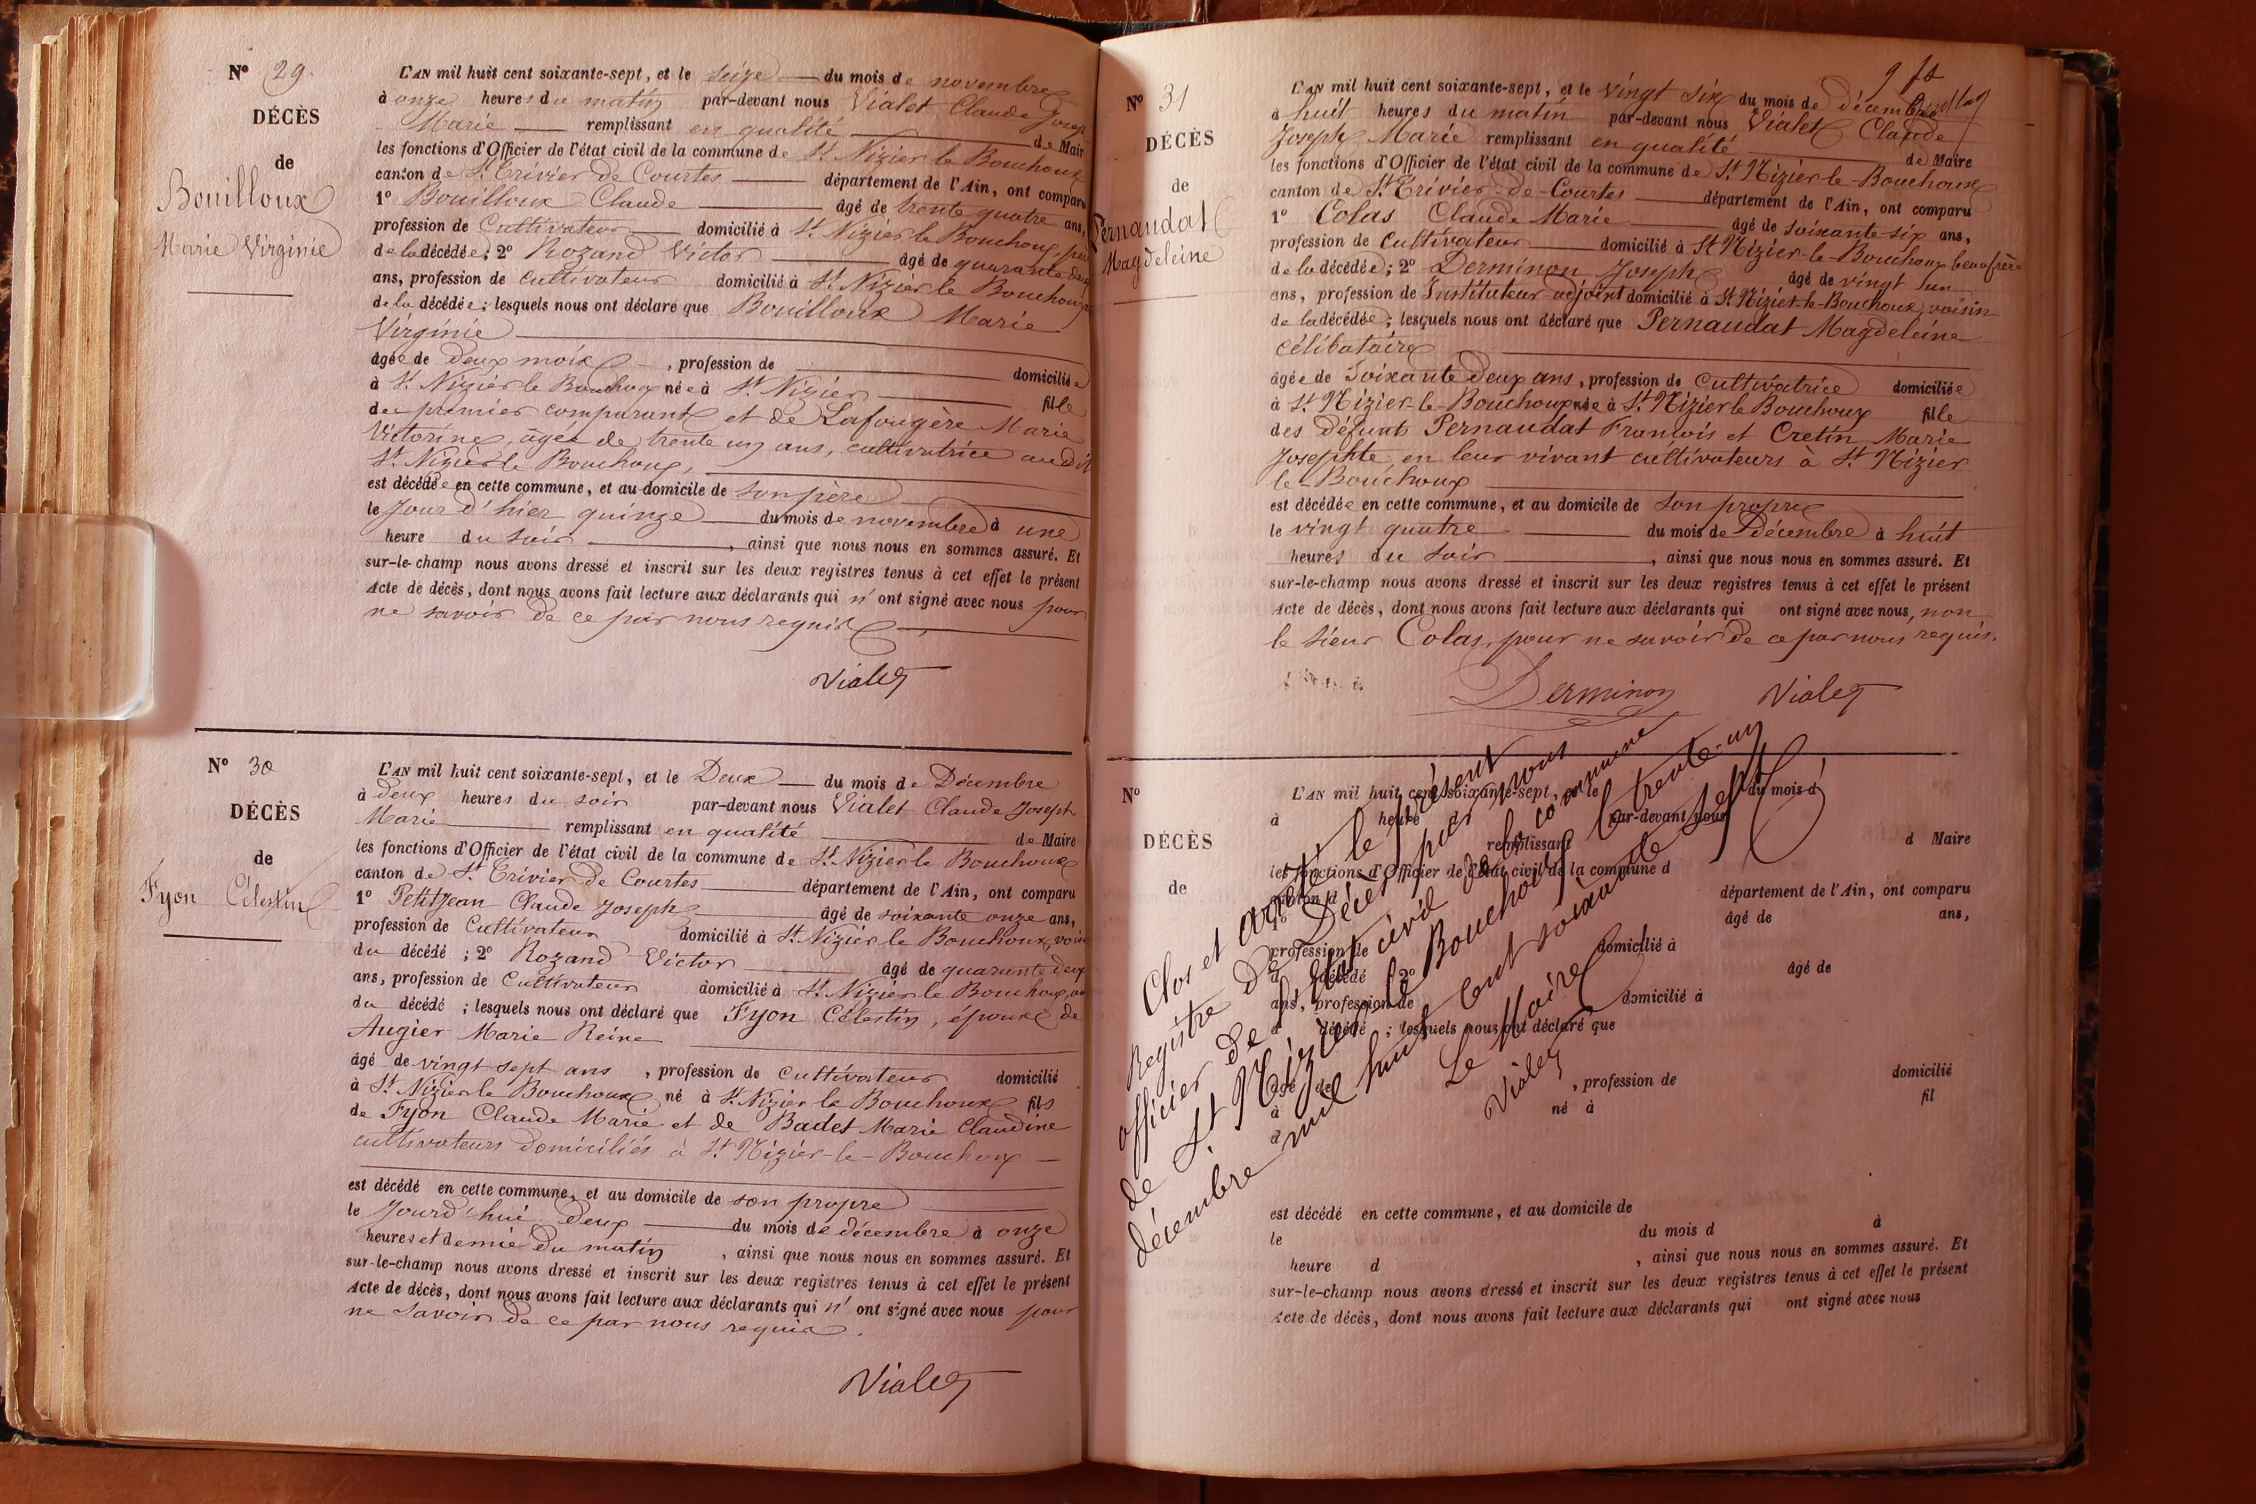 N° 29.
DÉCÈS
de
Bouilloux
Marie Virginie
L'AN mil huit cent soixante-sept, et le seize du mois de novembre
à onze heures du matin par-devant nous Vialet Claude Joseph
Marie remplissant en qualité de Mair
les fonctions d'Officier de l'état civil de la commune de St Nizier le Bouchoux
canton de St Trivier de Courtes département de l'Ain, ont comparu
1° Bouilloux Claude âgé de trente quatre ans,
profession de Cultivateur domicilié à St Nizier le Bouchoux, père
de la décédée; 2° Rozand Victor âgé de quarante deux
ans, profession de cultivateur domicilié à St Nizier le Bouchoux
de la décédée; lesquels nous ont déclaré que Bouilloux Marie
Virginie
âgée de deux mois, profession de domiciliée
à St Nizier le Bouchoux née à St Nizier fille
du premier comparant et de Lafougère Marie
Victorine, âgée de trente un ans, cultivatrice audit
St Nizier le Bouchoux,
est décédée en cette commune, et au domicile de son père
le Jour d'hier quinze du mois de novembre à une
heure du soir, ainsi que nous nous en sommes assuré. Et
sur-le-champ nous avons dressé et inscrit sur les deux registres tenus à cet effet le présent
Acte de décès, dont nous avons fait lecture aux déclarants qui n'ont signé avec nous pour
ne savoir de ce par nous requis
Vialet
N° 30
DÉCÈS
de
Fyon Célestin
L'AN mil huit cent soixante-sept, et le Deux du mois de Décembre
à deux heures du soir par-devant nous Vialet Claude Joseph
Marie remplissant en qualité de Maire
les fonctions d'Officier de l'état civil de la commune de St Nizier le Bouchoux
canton de St Trivier de Courtes département de l'Ain, ont comparu
1° Petitjean Claude Joseph âgé de soixante onze ans,
profession de Cultivateur domicilié à St Nizier le Bouchoux, voisin
du décédé; 2° Rozand Victor âgé de quarante deux
ans, profession de Cultivateur domicilié à St Nizier le Bouchoux,
du décédé; lesquels nous ont déclaré que Fyon Célestin, époux de
Augier Marie Reine
âgé de vingt sept ans, profession de cultivateur domicilié
à St Nizier le Bouchoux né à St Nizier le Bouchoux fils
de Fyon Claude Marie et de Badet Marie Claudine
cultivateurs domiciliés à St Nizier-le-Bouchoux
est décédé en cette commune, et au domicile de son propre
le Jourd'hui deux du mois de décembre à onze
heures et demie du matin, ainsi que nous nous en sommes assuré. Et
sur-le-champ nous avons dressé et inscrit sur les deux registres tenus à cet effet le présent
Acte de décès, dont nous avons fait lecture aux déclarants qui n'ont signé avec nous pour
ne savoir de ce par nous requis.
Vialet
N° 31
DÉCÈS
de
Pernaudat
Magdeleine
L'AN mil huit cent soixante-sept, et le vingt six du mois de décembre
à huit heures du matin par-devant nous Vialet Claude
Joseph Marie remplissant en qualité de Maire
les fonctions d'Officier de l'état civil de la commune de St Nizier-le-Bouchoux
canton de St Trivier-de-Courtes département de l'Ain, ont comparu
1° Colas Claude Marie âgé de soixante-six ans,
profession de Cultivateur domicilié à St Nizier-le-Bouchoux beaufrère
de la décédée; 2° Derminon Joseph âgé de vingt un
ans, profession de Instituteur adjoint domicilié à St Nizier-le-Bouchoux, voisin
de la décédée; lesquels nous ont déclaré que Pernaudat Magdeleine
célibataire
âgée de soixante deux ans, profession de Cultivatrice domiciliée
à St Nizier-le-Bouchoux née à St Nizier le Bouchoux fille
des défunts Pernaudat François et Cretin Marie
Josephte en leur vivant cultivateurs à St Nizier
le-Bouchoux
est décédée en cette commune, et au domicile de son propre
le vingt quatre du mois de Décembre à huit
heures du soir, ainsi que nous nous en sommes assuré. Et
sur-le-champ nous avons dressé et inscrit sur les deux registres tenus à cet effet le présent
Acte de décès, dont nous avons fait lecture aux déclarants qui ont signé avec nous, non
le sieur Colas, pour ne savoir de ce par nous requis.
Derminon Vialet
N°
DÉCÈS
de
L'AN mil huit cent soixante-sept, et le du mois d
à heure par-devant nous
remplissant d Maire
les fonctions d'Officier de l'état civil de la commune d
canton d département de l'Ain, ont comparu
1° âgé de ans,
profession de domicilié à
d décédé 2° âgé de
ans, profession de domicilié à
d décédé; lesquels nous ont déclaré que
âgé de, profession de domicilié
à né à fil
d
est décédé en cette commune, et au domicile de
le du mois d à
heure d, ainsi que nous nous en sommes assuré. Et
sur-le-champ nous avons dressé et inscrit sur les deux registres tenus à cet effet le présent
Acte de décès, dont nous avons fait lecture aux déclarants qui ont signé avec nous
Clos et arrêté le présent
Registre de Décès par nous
officier de l'état civil de la commune
de St Nizier le Bouchoux le trente-un
décembre mil huit cent soixante sept
Le Maire
Vialet